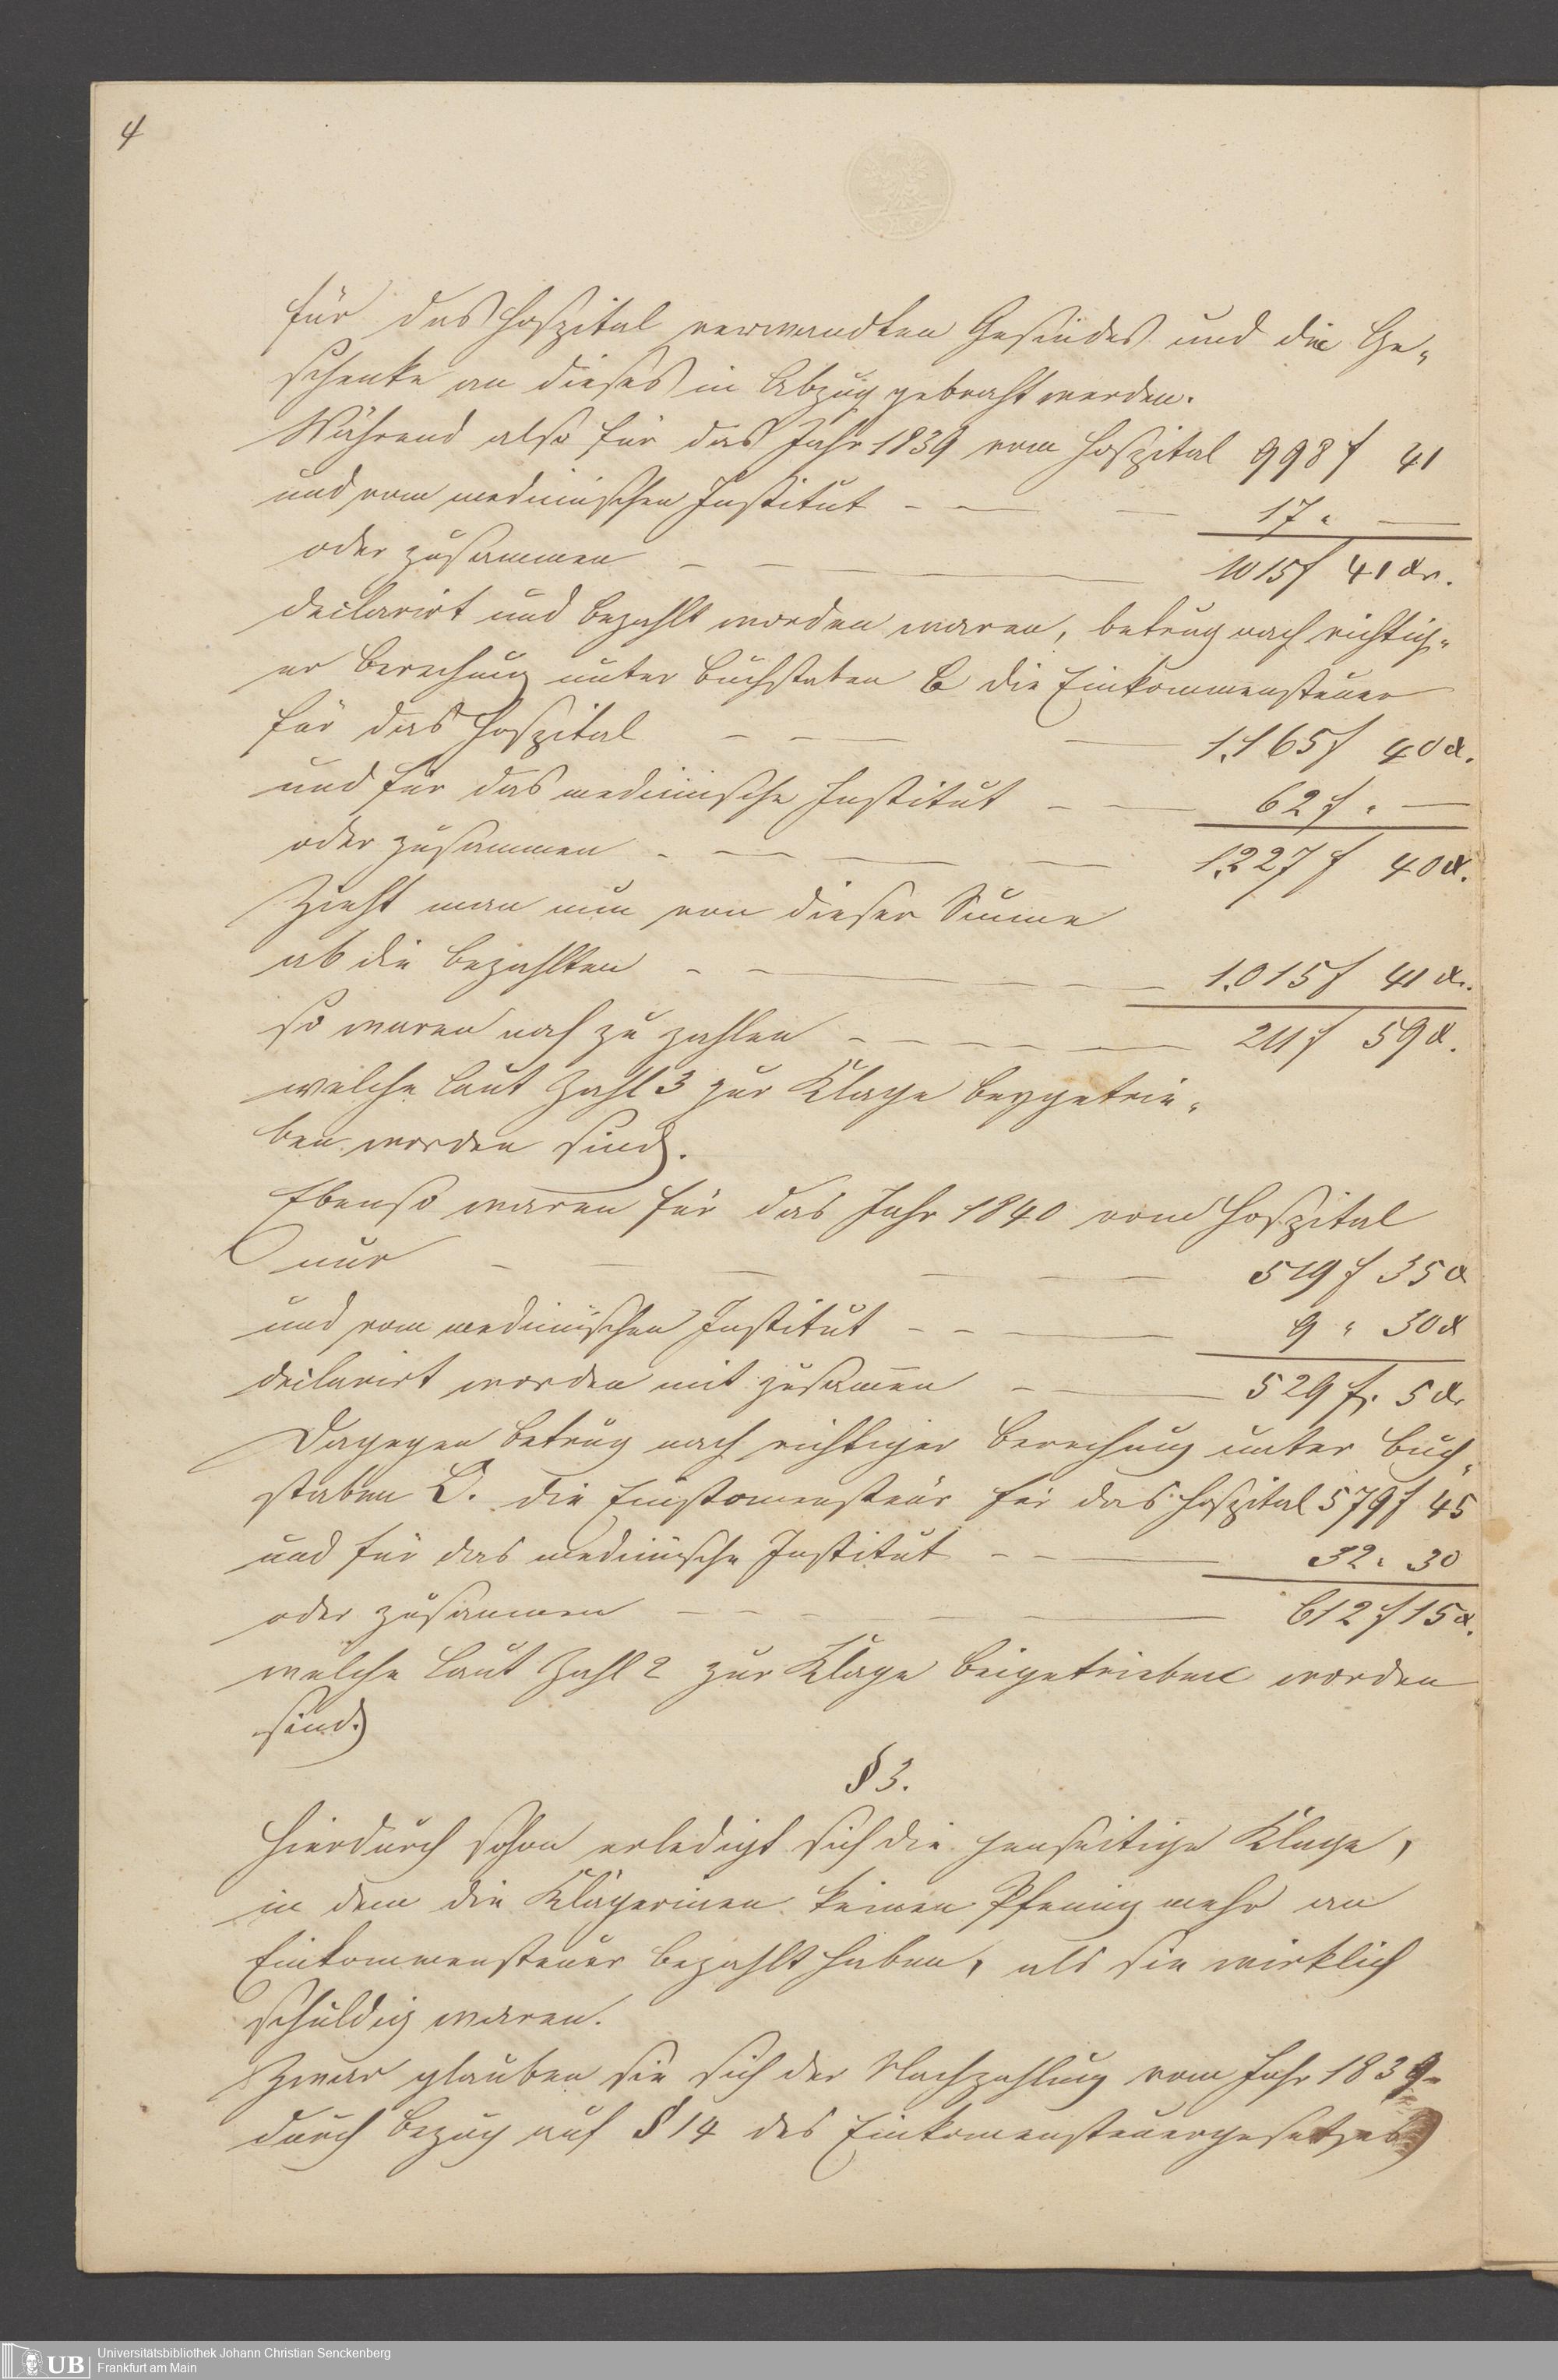 4
für das Hospital verwandten Gesindes und die Ge-
schenke an dieses in Abzug gebracht werden.
Während also für das Jahr 1839 vom Hospital 998 f 41
und vom medicinischen Institut - - - 17 " -
oder zusammen - - - 1015 f 41 xr.
declarirt und bezahlt worden waren, betrug nach richtig-
er Berechnung unter Buchstaben B die Einkommensteuer
für das Hospital - - - 1.165 f 40 x.
und für das medicinische Institut - - 62 f. -
oder zusammen - - - 1.227 f 40 x.
Zieht man nun von dieser Summe
ab die bezahlten - - - 1.015 f 41 xr.
so waren noch zu zahlen - - - 211 f 59 x.
welche laut Zahl 3 zur Klage beygetrie-
ben worden sind.
Ebenso waren für das Jahr 1840 vom Hospital
nur - - - 519 f 35 x
und vom medicinischen Institut - - - 9 " 30 x
declarirt worden mit zusam̄en - - 529 f. 5 xr
Dagegen betrug nach richtiger Berechnung unter Buch-
staben D. die Einkomensteür für das Hospital 579 f 45
und für das medicinische Institut - - - 32 " 30
oder zusammen - - - 612 f 15 x.
welche laut Zahl 2 zur Klage beigetrieben worden
sind.
§ 3.
Hierdurch schon erledigt sich die jenseitige Klage,
in dem die Klägerinen keinen Pfennig mehr an
Einkommensteuer bezahlt haben, als sie wirklich
schuldig waren.
Zwar glauben sie sich der Nachzahlung vom Jahr 1839
durch Bezug auf § 14 des Einkomensteuergesetzes
UB Universitätsbibliothek Johann Christian Senckenberg
Frankfurt am Main